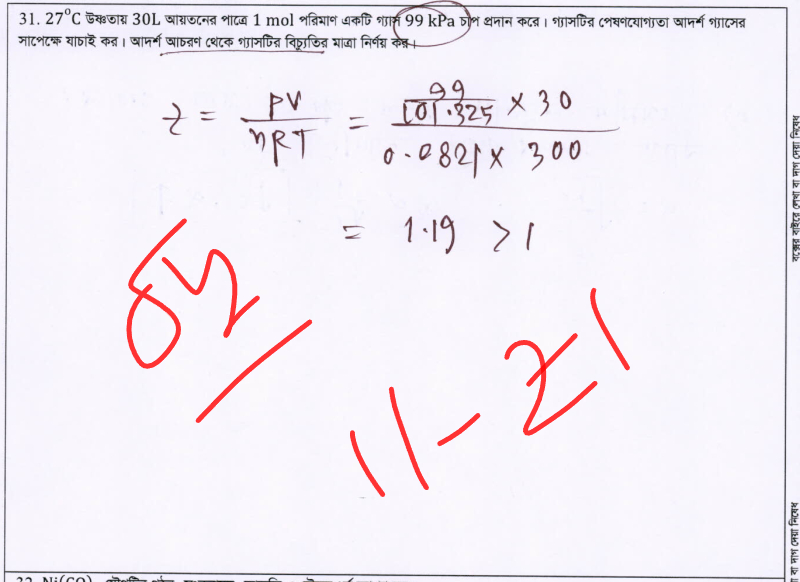 31. 27⁰C উষ্ণতায় 30L আয়তনের পাত্রে 1 mol পরিমাণ একটি গ্যাস 99 kPa চাপ প্রদান করে। গ্যাসটির পেষণযোগ্যতা আদর্শ গ্যাসের
সাপেক্ষে যাচাই কর। আদর্শ আচরণ থেকে গ্যাসটির বিচ্যুতির মাত্রা নির্ণয় কর।
z = PV / nRT = 99/101.325 × 30 / 0.0821 × 300
= 1.19 > 1
11-21
বক্সের বাইরে লেখা বা দাগ দেয়া নিষেধ
বা দাগ দেয়া নিষেধ
32. Ni(CO)